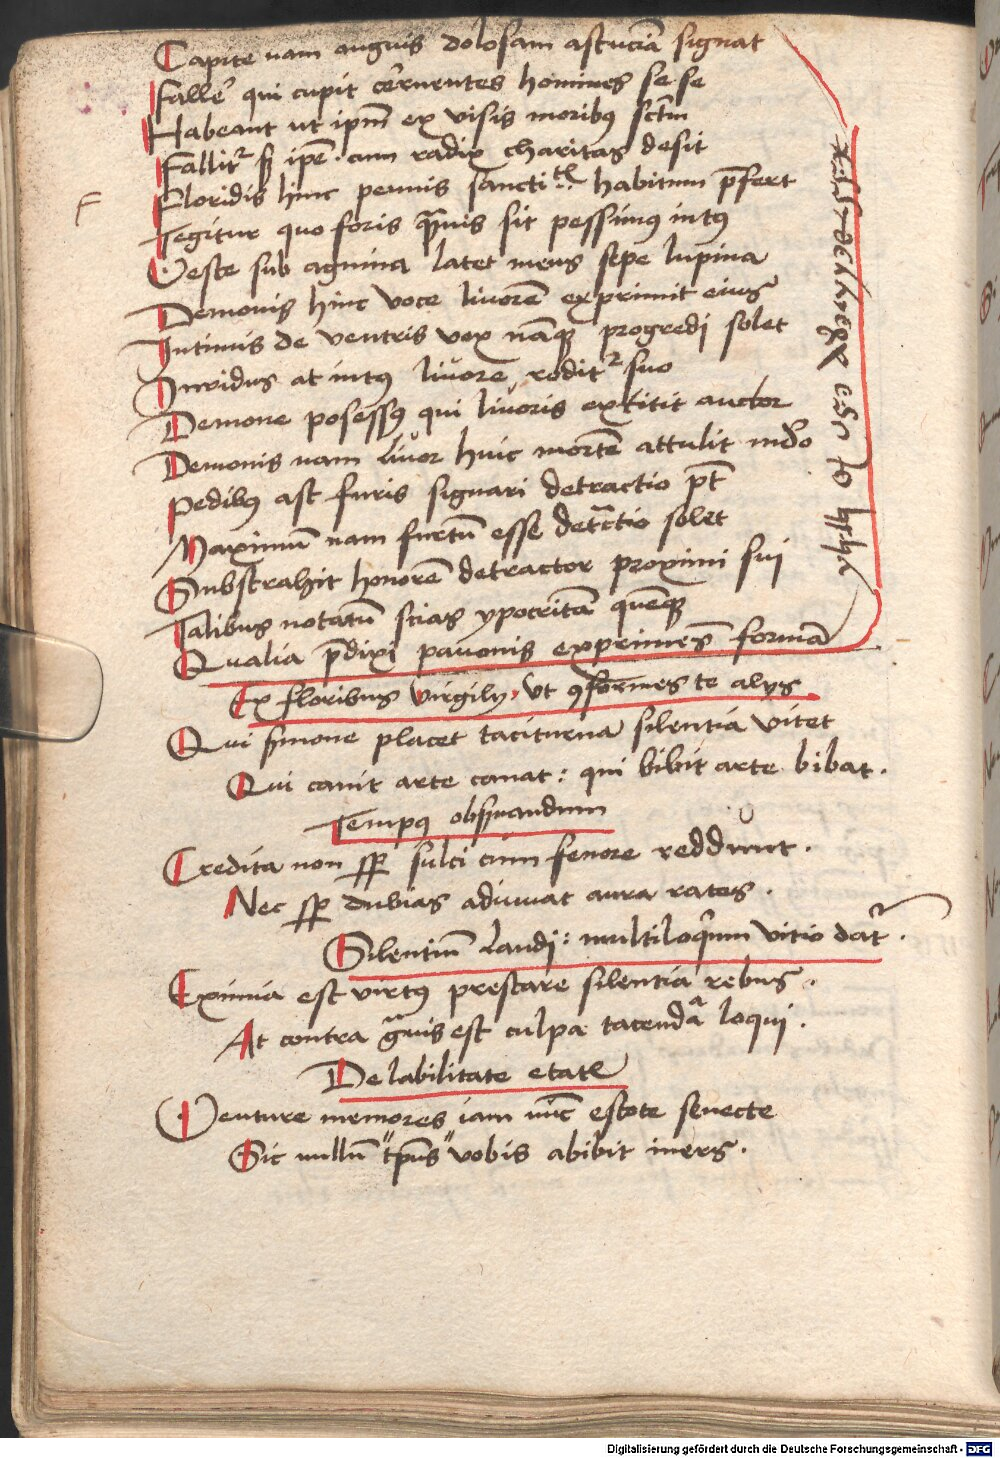 Capite nam anguis dolosam astuciā signat
Fallē qui cupit cernentes homines se se
Habeant ut ipm̄ ex visis moribꝯ sctm̄
Fallitᷣ sꝫ ipē · cum radix charitas desit
F
Floridis hinc pennis sancti habitum p̄fert
Tegitur quo foris qᵃuis sit pessimꝯ intꝯ
Veste sub agnina latet mens sepe lupina
Demonis hinc voce liuorē exprimit eius
Intimis de ventris vox nāqꝫ progredi solet
Inuidus at intꝯ liuore roditᷣ suo
Demone posessꝯ qui liuoris extitit auctor
Demonis nam liuor huic mortē attulit mdo
Pedibꝯ ast furis signari detractio pt̄
Maximū nam furtū esse detᵃctio solet
Substrahit honorē detractor proximi sui
Talibus notatū scias ypocritā quēqꝫ
Qualia p̄dixi pauonis exprimēs formā
Ex floribus virgilij, ut ꝯformes te alijs
Qui ẜmone placet taciturna silentia vitet
Qui canit arte canat : qui bibit arte bibat .
Tempꝯ obẜuandum
Credita non ſꝑ sulci cum fenore reddunt .
Nec ſꝑ dubias adiuuat aura rates .
Silentiū laudi : multiloqⁱum vitio datᷣ .
Eximia est virtꝯ prestare silentia rebus .
At contra gᵃuis est culpa tacendᵃ loqui .
De labilitate etatꝭ
Venture memores iam nūc estote senecte
Sic nullū "tp̄us" vobis abibit iners .
Digitalisierung gefördert durch die Deutsche Forschungsgemeinschaft - DFG